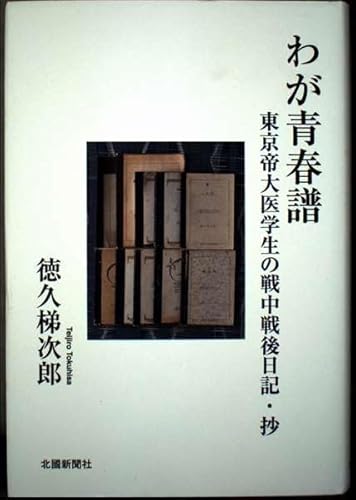 わが青春譜
東京帝大医学生の戦中戦後日記・抄
徳久梯次郎
Teijiro Tokuhisa
北國新聞社